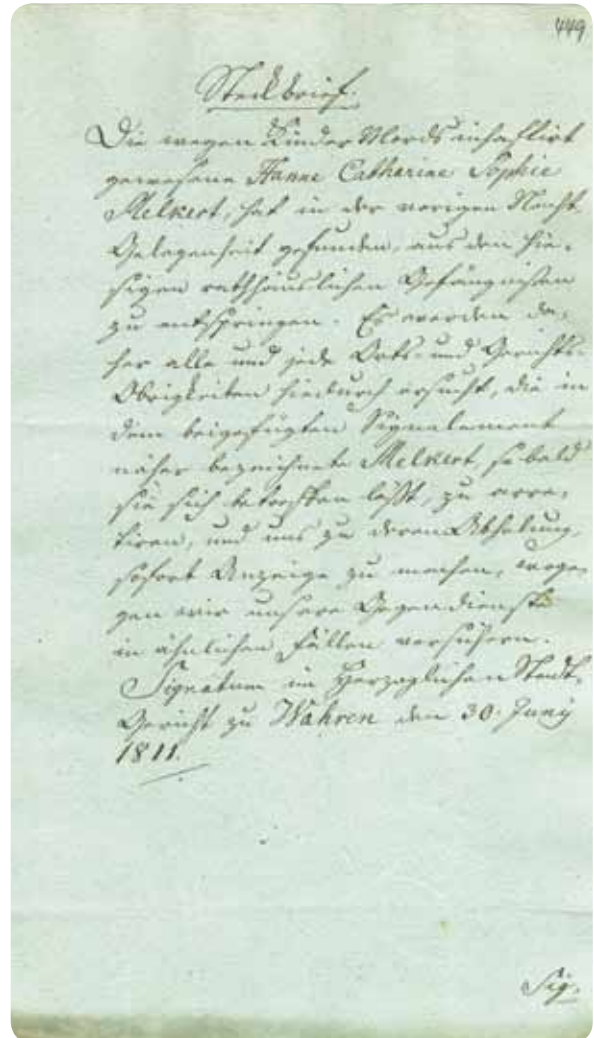 449
Steckbrief.
Die wegen Kinder Mords inhaftirt
gewesene Hanne Catharine Sophie
Melkert, hat in der vorigen Nacht
Gelegenheit gefunden, aus den hie-
sigen rathhäuslichen Gefängnißen
zu entspringen. Es werden da-
her alle und jede Orts- und Gerichts-
Obrigkeiten hiedurch ersucht, die in
dem beigefügten Signalement
näher bezeichnete Melkert, so bald
sie sich betreffen läßt, zu arre-
tiren, und uns zu deren Abholung,
sofort Anzeige zu machen, woge-
gen wir unsere Gegendienste
in ähnlichen Fällen versichern.
Signatum im Herzoglichen Stadt-
Gericht zu Wahren den 30. Juny
1811.
Sig-